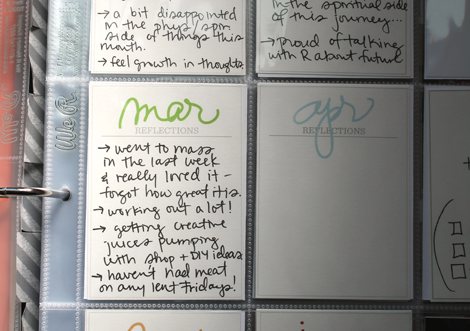 → a bit disappointed
in the phys/spir
side of things this
month.
→ feel growth in thoughts
in the spiritual side
of this journey...
→ proud of talking
with R about future
mar
REFLECTIONS
→ went to mass
in the last week
& really loved it -
forgot how great it is.
→ working out a lot!
→ getting creative
juices pumping
with shop + DIY ideas
→ haven't had meat
on any lent fridays!
apr
REFLECTIONS
We R